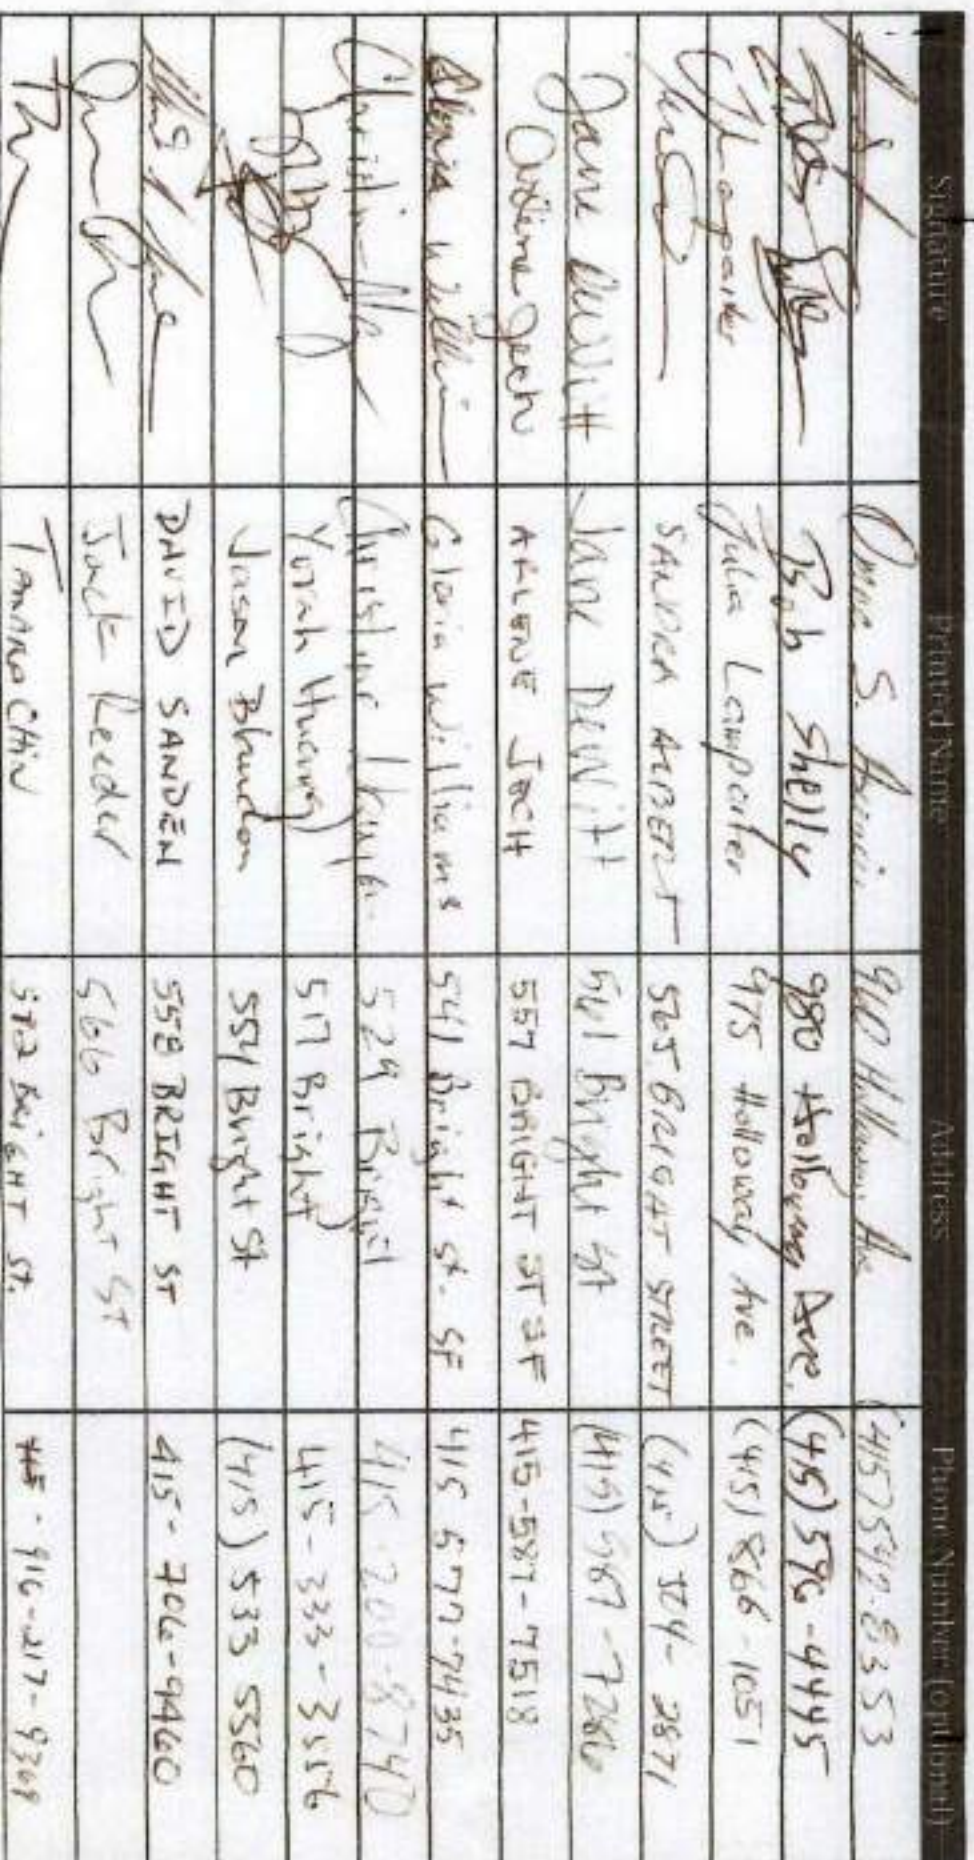 Signature Printed Name Address Phone Number (optional)
S. 910 Holloway Ave (415) 592-8353
Bob Shelly 980 Holloway Ave. (415) 586-4445
Julia Lamparter 975 Holloway Ave. (415) 866-1051
SANDRA ALBERT 565 BRIGHT STREET 2871
Jane DeWitt Jane DeWitt 561 Bright St (415) 567-7286
Arlene Joch ARLENE JOCH 557 BRIGHT ST SF 415-587-7518
Gloria Williams Gloria Williams 541 Bright St. SF 415 577-7435
Christine 529 Bright 415-200-8740
Huang 517 Bright 415-333-3556
Jason 554 Bright St (415) 533 5560
DAVID SANDEN 558 BRIGHT ST 415-706-9460
Jack Reeder 566 Bright ST
TAMARA CHIN 572 BRIGHT ST. 916-217-9369